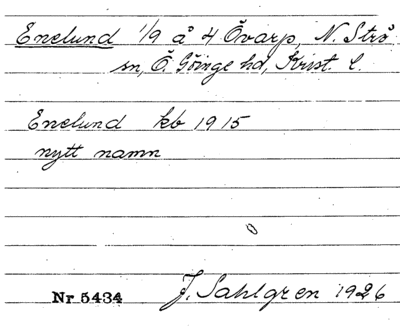 Enelund 1/9 å 4 Övarp, N. Strö
sn, Ö. Göinge hd, Krist. l.
Enelund kb 1915
nytt namn
Nr 5434 J. Sahlgren 1926